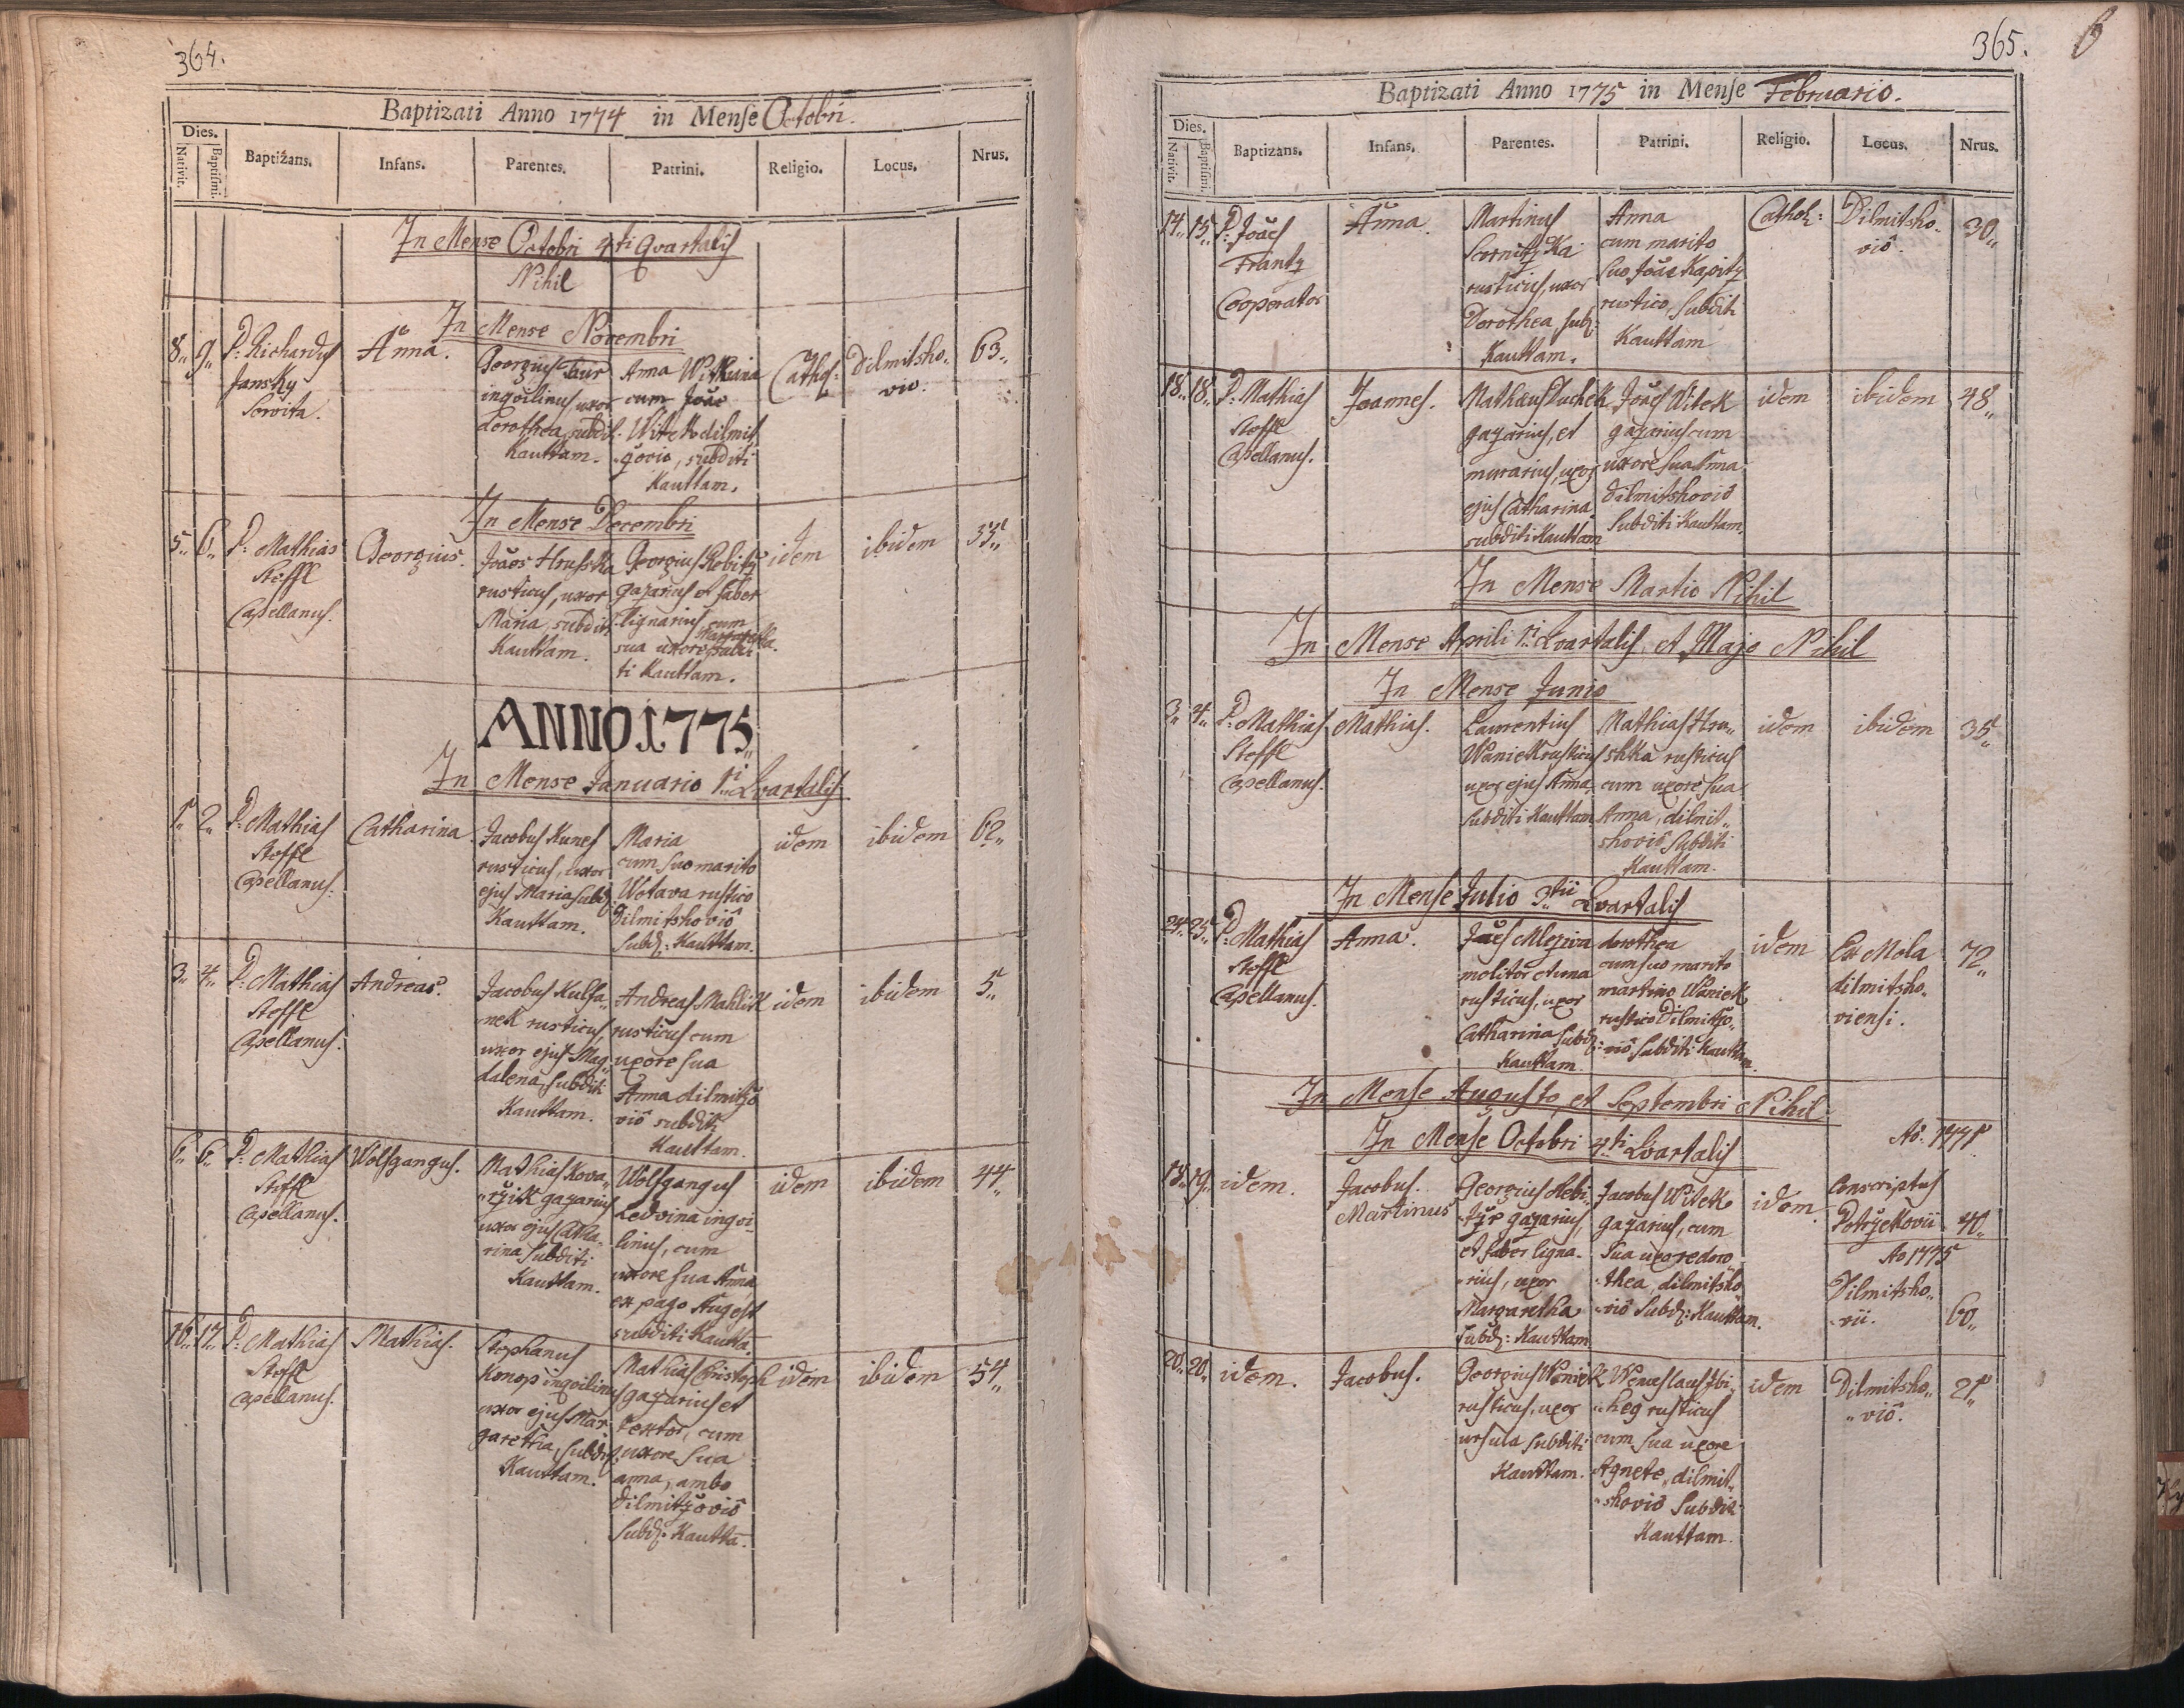 364.
Baptizati Anno 1774 in Mense Octobri.
Dies.
Nativit.
Baptismi.
Baptizans.
Infans.
Parentes.
Patrini.
Religio.
Locus.
Nrus.
In Mense Octobri 4ti Qvartalis
Nihil
In Mense Novembri
8,, 9,,
P: Richardus
Jansky
Servita.
Anna.
Georgius
inqvilinus uxor
Dorothea, subdit:
Kauttam.
Anna Witkuina
cum Joãe
Witek dilmit
šovio, subditi
Kauttam.
Cathol:
Dilmitsho,,
vio.
63,,
In Mense Decembri
5,, 6,,
P: Mathias
Stoffl
Capellanus.
Georgius.
Joães Hrusska
rusticus, uxor
Maria, subditi
Kauttam.
Georgius Rebitz
gazarius et faber
lignarius cum
sua uxore Margaretha
subdi
ti Kauttam.
idem
ibidem
33,,
ANNO 1775,,
In Mense Januario 1i Qvartalis
1,, 2,,
P: Mathias
Stoffl
Capellanus.
Catharina.
Jacobus Kunes
rusticus, uxor
ejus Maria subd:
Kauttam.
Maria
cum suo marito
Wotava rustico
Dilmitshoviô
Subd: Kauttam.
idem
ibidem
62,,
3,, 4,,
P: Mathias
Stoffl
Capellanus.
Andreas.
Jacobus Kulfa,,
,,nek rusticus,
uxor ejus Mag,,
dalena, subditi
Kauttam.
Andreas Mahlik
rusticus cum
uxore sua
Anna dilmitzo
viô subditi
Kauttam.
idem
ibidem
5,,
6,, 6,,
P: Mathias
Stoffl
Capellanus.
Wolfgangus.
Mathias Kova,,
,,rzik gazarius
uxor ejus Catha,,
rina subditi
Kauttam.
Wolfgangus
Ledvina inqvi,,
linus, cum
uxore sua Anna,
ex pago Augest
subditi Kautta.
idem
ibidem
44,,
16,, 17,,
P: Mathias
Stoffl
Capellanus.
Mathias.
Stephanus
Konop inqvilinus
uxor ejus Mar,,
garetha, subditi
Kauttam.
Mathias Christoph
gazarius et
textor, cum
uxore sua
anna, ambo
dilmitzoviô
Subd: Kautta.
idem
ibidem
54,,
365.
6
Baptizati Anno 1775 in Mense Februario.
Dies.
Nativit.
Baptismi.
Baptizans.
Infans.
Parentes.
Patrini.
Religio.
Locus.
Nrus.
14,, 15,,
P: Joães
Frantz
Cooperator
Anna.
Martinus
rusticus, uxor
Dorothea, subd:
Kauttam.
Anna
cum marito
suo Joãe Kapitz
rustico, subditi
Kauttam
Cathol:
Dilmitsho,,
viô.
30,,
18,, 18,,
P: Mathias
Stoffl
Capellanus.
Joannes.
Mathaus Duchek
gazarius, et
murarius, uxor
ejus Catharina
subditi Kauttam
Joães Witek
gazarius cum
uxore sua Anna
Dilmitshoviô
Subditi Kauttam.
idem
ibidem
48,,
In Mense Martio Nihil
In Mense Aprili 1i Qvartalis, et Majo Nihil
In Mense Junio
3,, 4,,
P: Mathias
Stoffl
Capellanus.
Mathias.
Laurentius
Waniek rusticus
uxor ejus Anna
subditi Kauttam
Mathias Hru,,
shka rusticus
cum uxore sua
Anna, dilmit,,
shoviô subditi
Kauttam.
idem
ibidem
35,,
In Mense Julio 3tii Qvartalis
24,, 25,,
P: Mathias
Stoffl
Capellanus.
Anna.
Joães Mleziva
molitor et una
rusticus, uxor
Catharina subd:
Kauttam.
dorothea
cum suo marito
martino Waniek
rustico Dilmitzo,,
viô subditi Kauttam.
idem
Ex Mola
dilmitsho,,
viensi.
72,,
In Mense Augusto, et Septembri Nihil.
In Mense Octobri 4ti Qvartalis
18,, 19,,
idem.
Jacobus.
Martinus
Georgius Rebi,,
gazarius,
et faber ligna,,
rius, uxor
Margaretha
subd: Kauttam
Jacobus Witek
gazarius, cum
sua uxore doro,,
thea, dilmitsho,,
viô Subd: Kauttam.
idem.
Ao. 1771
Conscriptus
40,,
Ao 1775
Dilmitsho,,
vii.
60,,
20,, 20,,
idem.
Jacobus.
Georgius Waniek
rusticus, uxor
ursula subditi
Kauttam.
Wenceslaus Zbi,,
,,heg rusticus
cum sua uxore
Agnete, dilmit,,
shoviô Subditi
Kauttam.
idem
Dilmitsho,,
,,viô.
21,,